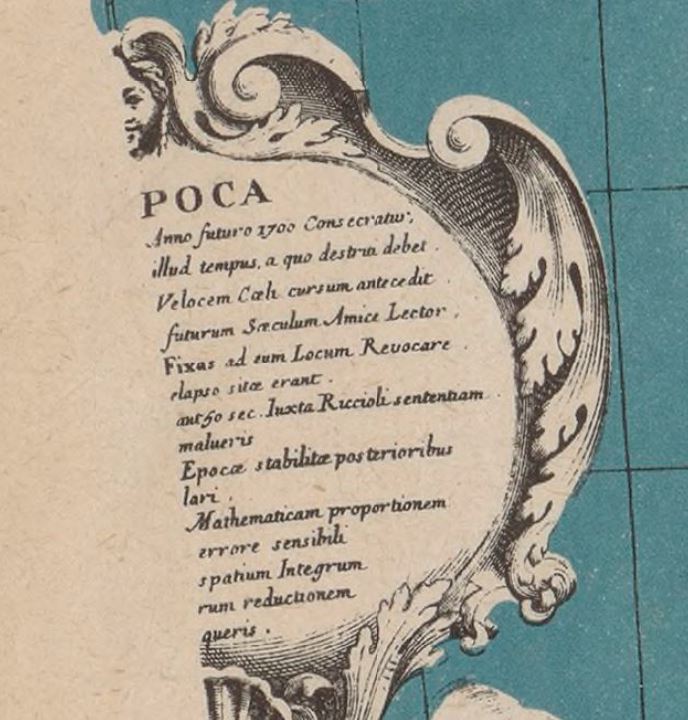 POCA
Anno futuro 1700 Consecratur,
illud tempus, a quo destrui debet.
Velocem Cœli cursum antecedit
futurum Sæculum Amice Lector,
Fixas ad eum Locum Revocare
elapso sitæ erant.
aut 50 sec. Iuxta Riccioli sententiam
malueris
Epocæ stabilitæ posterioribus
lari.
Mathematicam proportionem
errore sensibili
spatium Integrum
rum reductionem
queris.